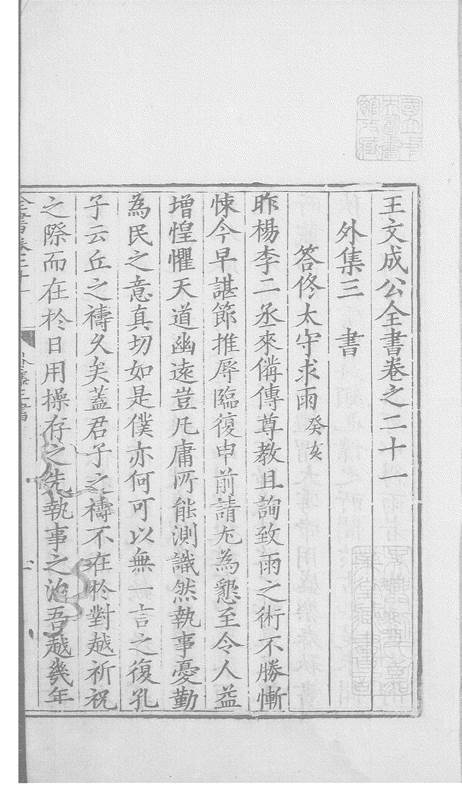 王文成公全書卷之二十一
外集三　書
答佟太守求雨癸亥
昨楊李二丞來偹傳尊教且詢致雨之術不勝慚
悚今早諶節推辱臨復申前請尤為懇至令人益
增惶懼天道幽遠豈凡庸所能測識然執事憂勤
為民之意真切如是僕亦何可以無一言之復孔
子云丘之禱久矣蓋君子之禱不在於對越祈祝
之際而在於日用操存之先執事之治吾越幾年